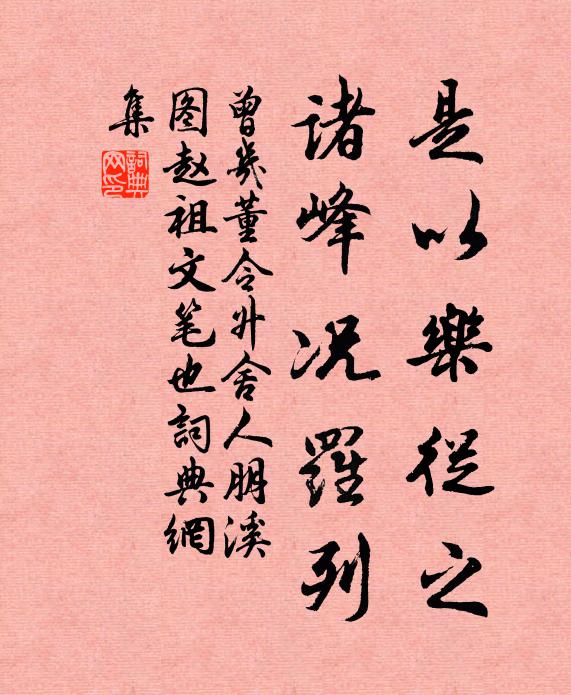 是以樂從之
諸峰况羅列
曾幾董令升舍人朋溪
图赵祖文笔也詞典網
集
詞典
网印